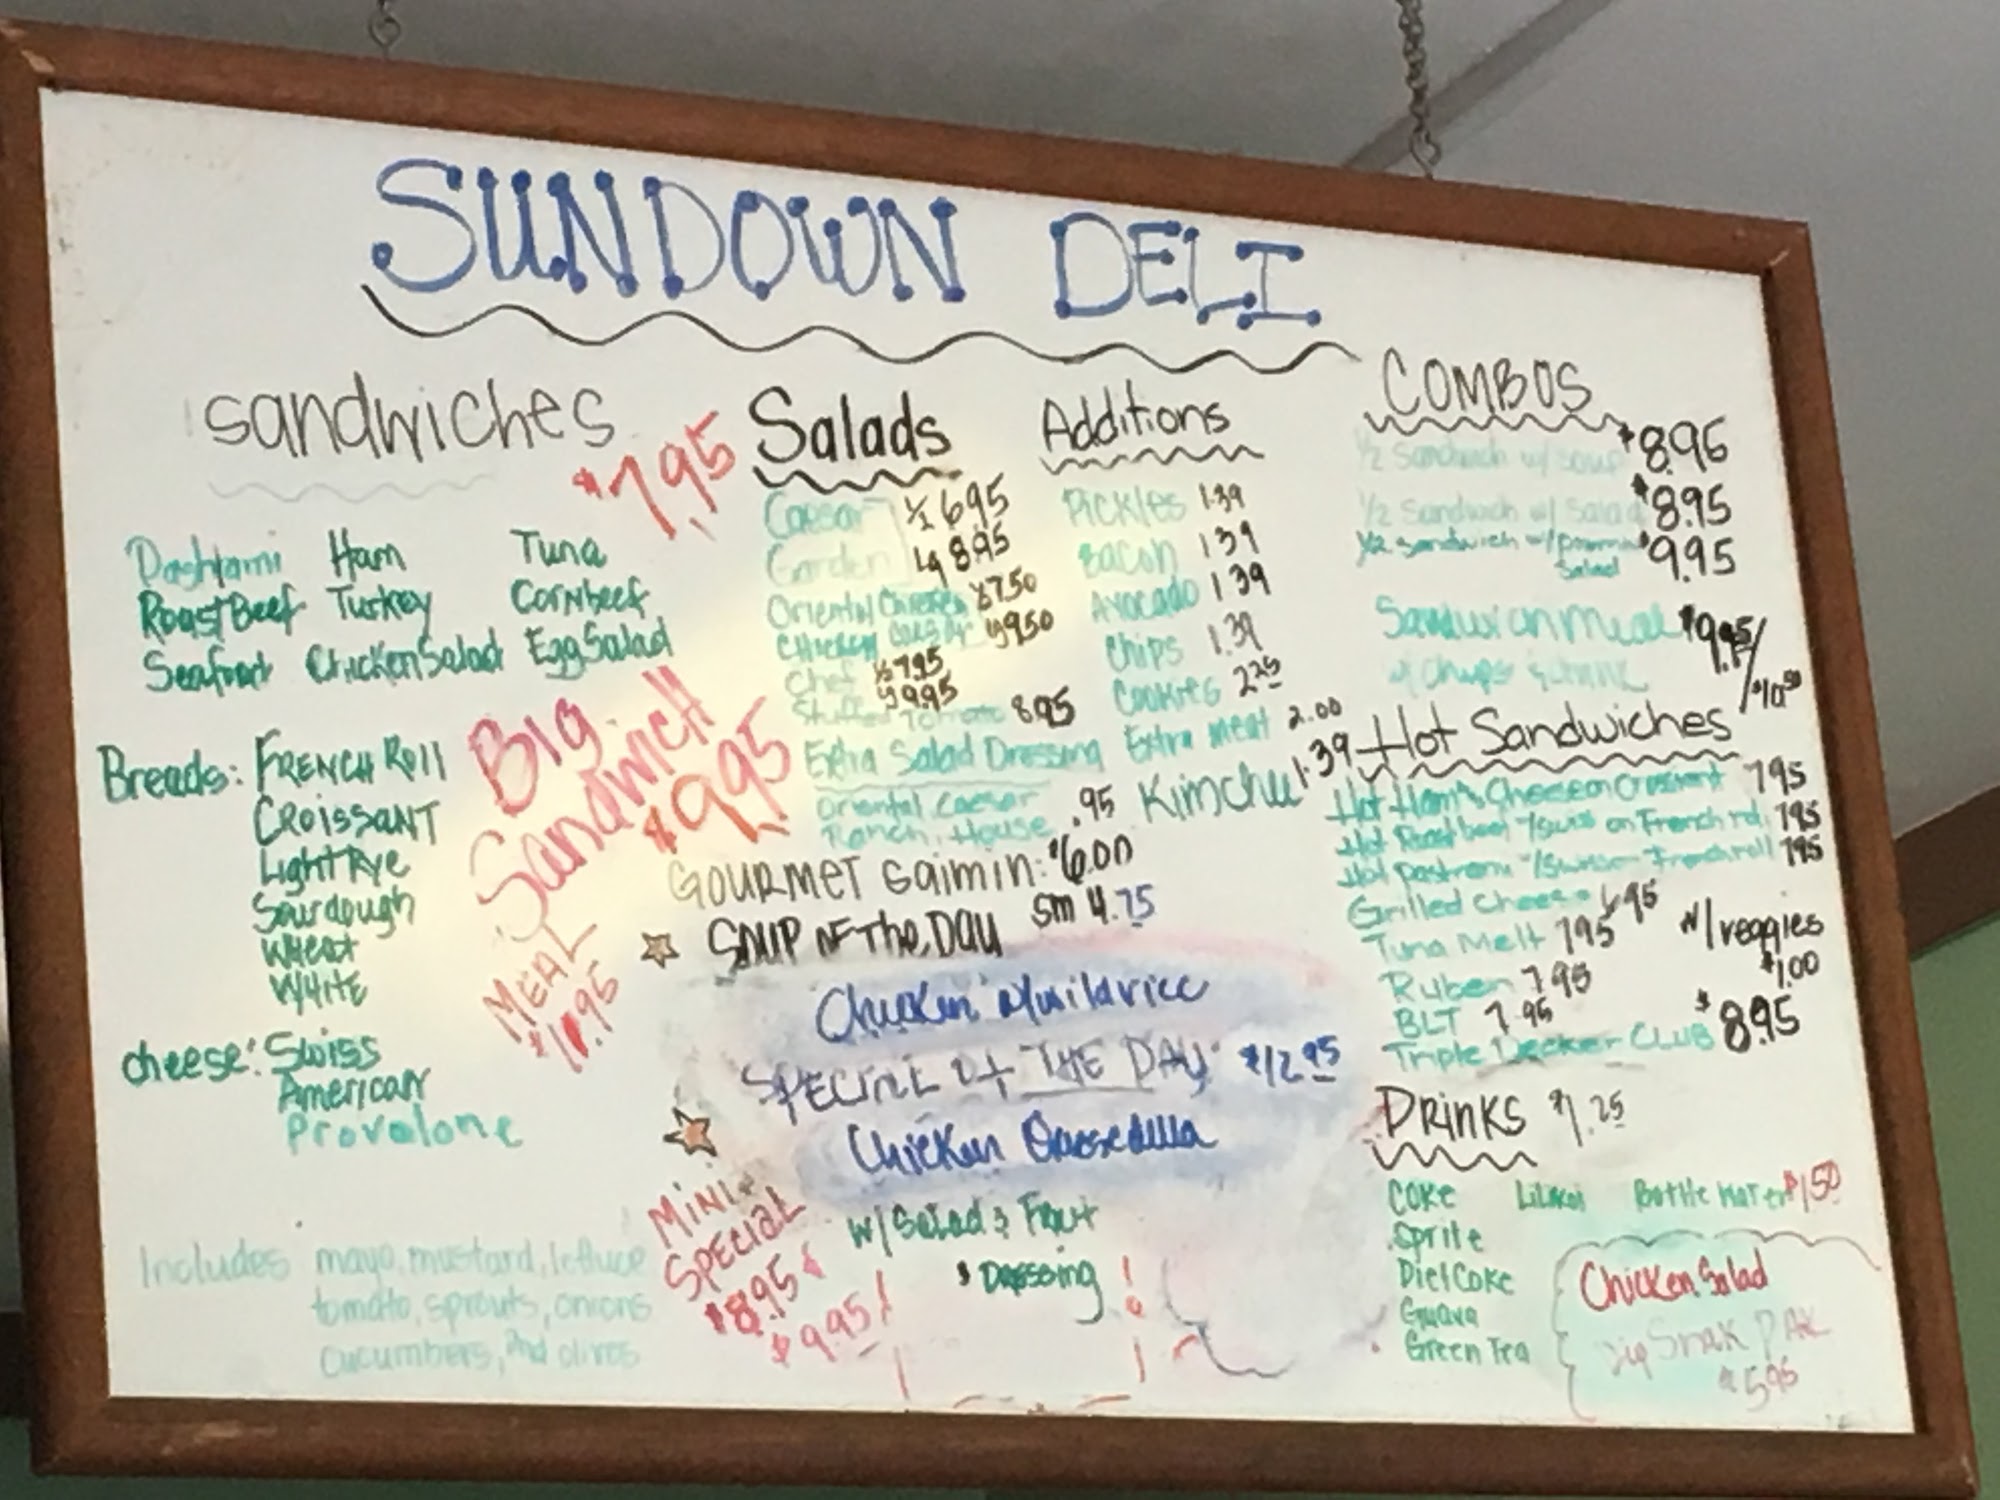 SUNDOWN DELI
Sandwiches
$7.95
Pastrami Ham Tuna
Roast Beef Turkey Cornbeef
Seafood Chicken Salad Egg Salad
Breads: FRENCH Roll
CROissANT
Light Rye
Sourdough
Wheat
White
cheese: Swiss
American
Provolone
Includes mayo, mustard, lettuce
tomato, sprouts, onions
cucumbers, and olives
Big
Sandwich
$9.95
MEAL
$11.95
Salads
Caesar ½ 6.95
Garden Lg 8.95
Oriental Chicken ½ 7.50
Chicken Caesar 9.50
Chef ½ 7.95
9.95
Stuffed Tomato 8.95
Extra Salad Dressing
Oriental Caesar .95
Ranch, House
Additions
Pickles 1.39
Bacon 1.39
Avocado 1.39
Chips 1.39
Cookies 2.25
Extra meat 2.00
Kimchee 1.39
GOURMET Saimin: $6.00
sm 4.75
SOUP OF The DAY
Chicken Wildrice
SPECIAL of THE DAY $12.95
Chicken Quesedilla
w/ Salad & Fruit
& Dressing
MINI
SPECIAL
$8.95
$9.95
COMBOS
½ Sandwich w/ Soup $8.95
½ Sandwich w/ Salad $8.95
½ Sandwich w/ Salad $9.95
Sandwich Meal $9.95/
w/ Chips & Drink /$10.50
Hot Sandwiches
Hot Ham & Cheese on Croissant 7.95
Hot Roast beef w/ Swiss on French roll 7.95
Hot Pastrami w/ Swiss on French roll 7.95
Grilled Cheese 6.95
Tuna Melt 7.95
w/ veggies
$1.00
Ruben 7.95
BLT 7.95
Triple Decker CLUB $8.95
DRINKS $1.25
Coke Lilikoi Bottle Water $1.50
Sprite
Diet Coke
Guava
Green Tea
Chicken Salad
Snak PAK
$5.95